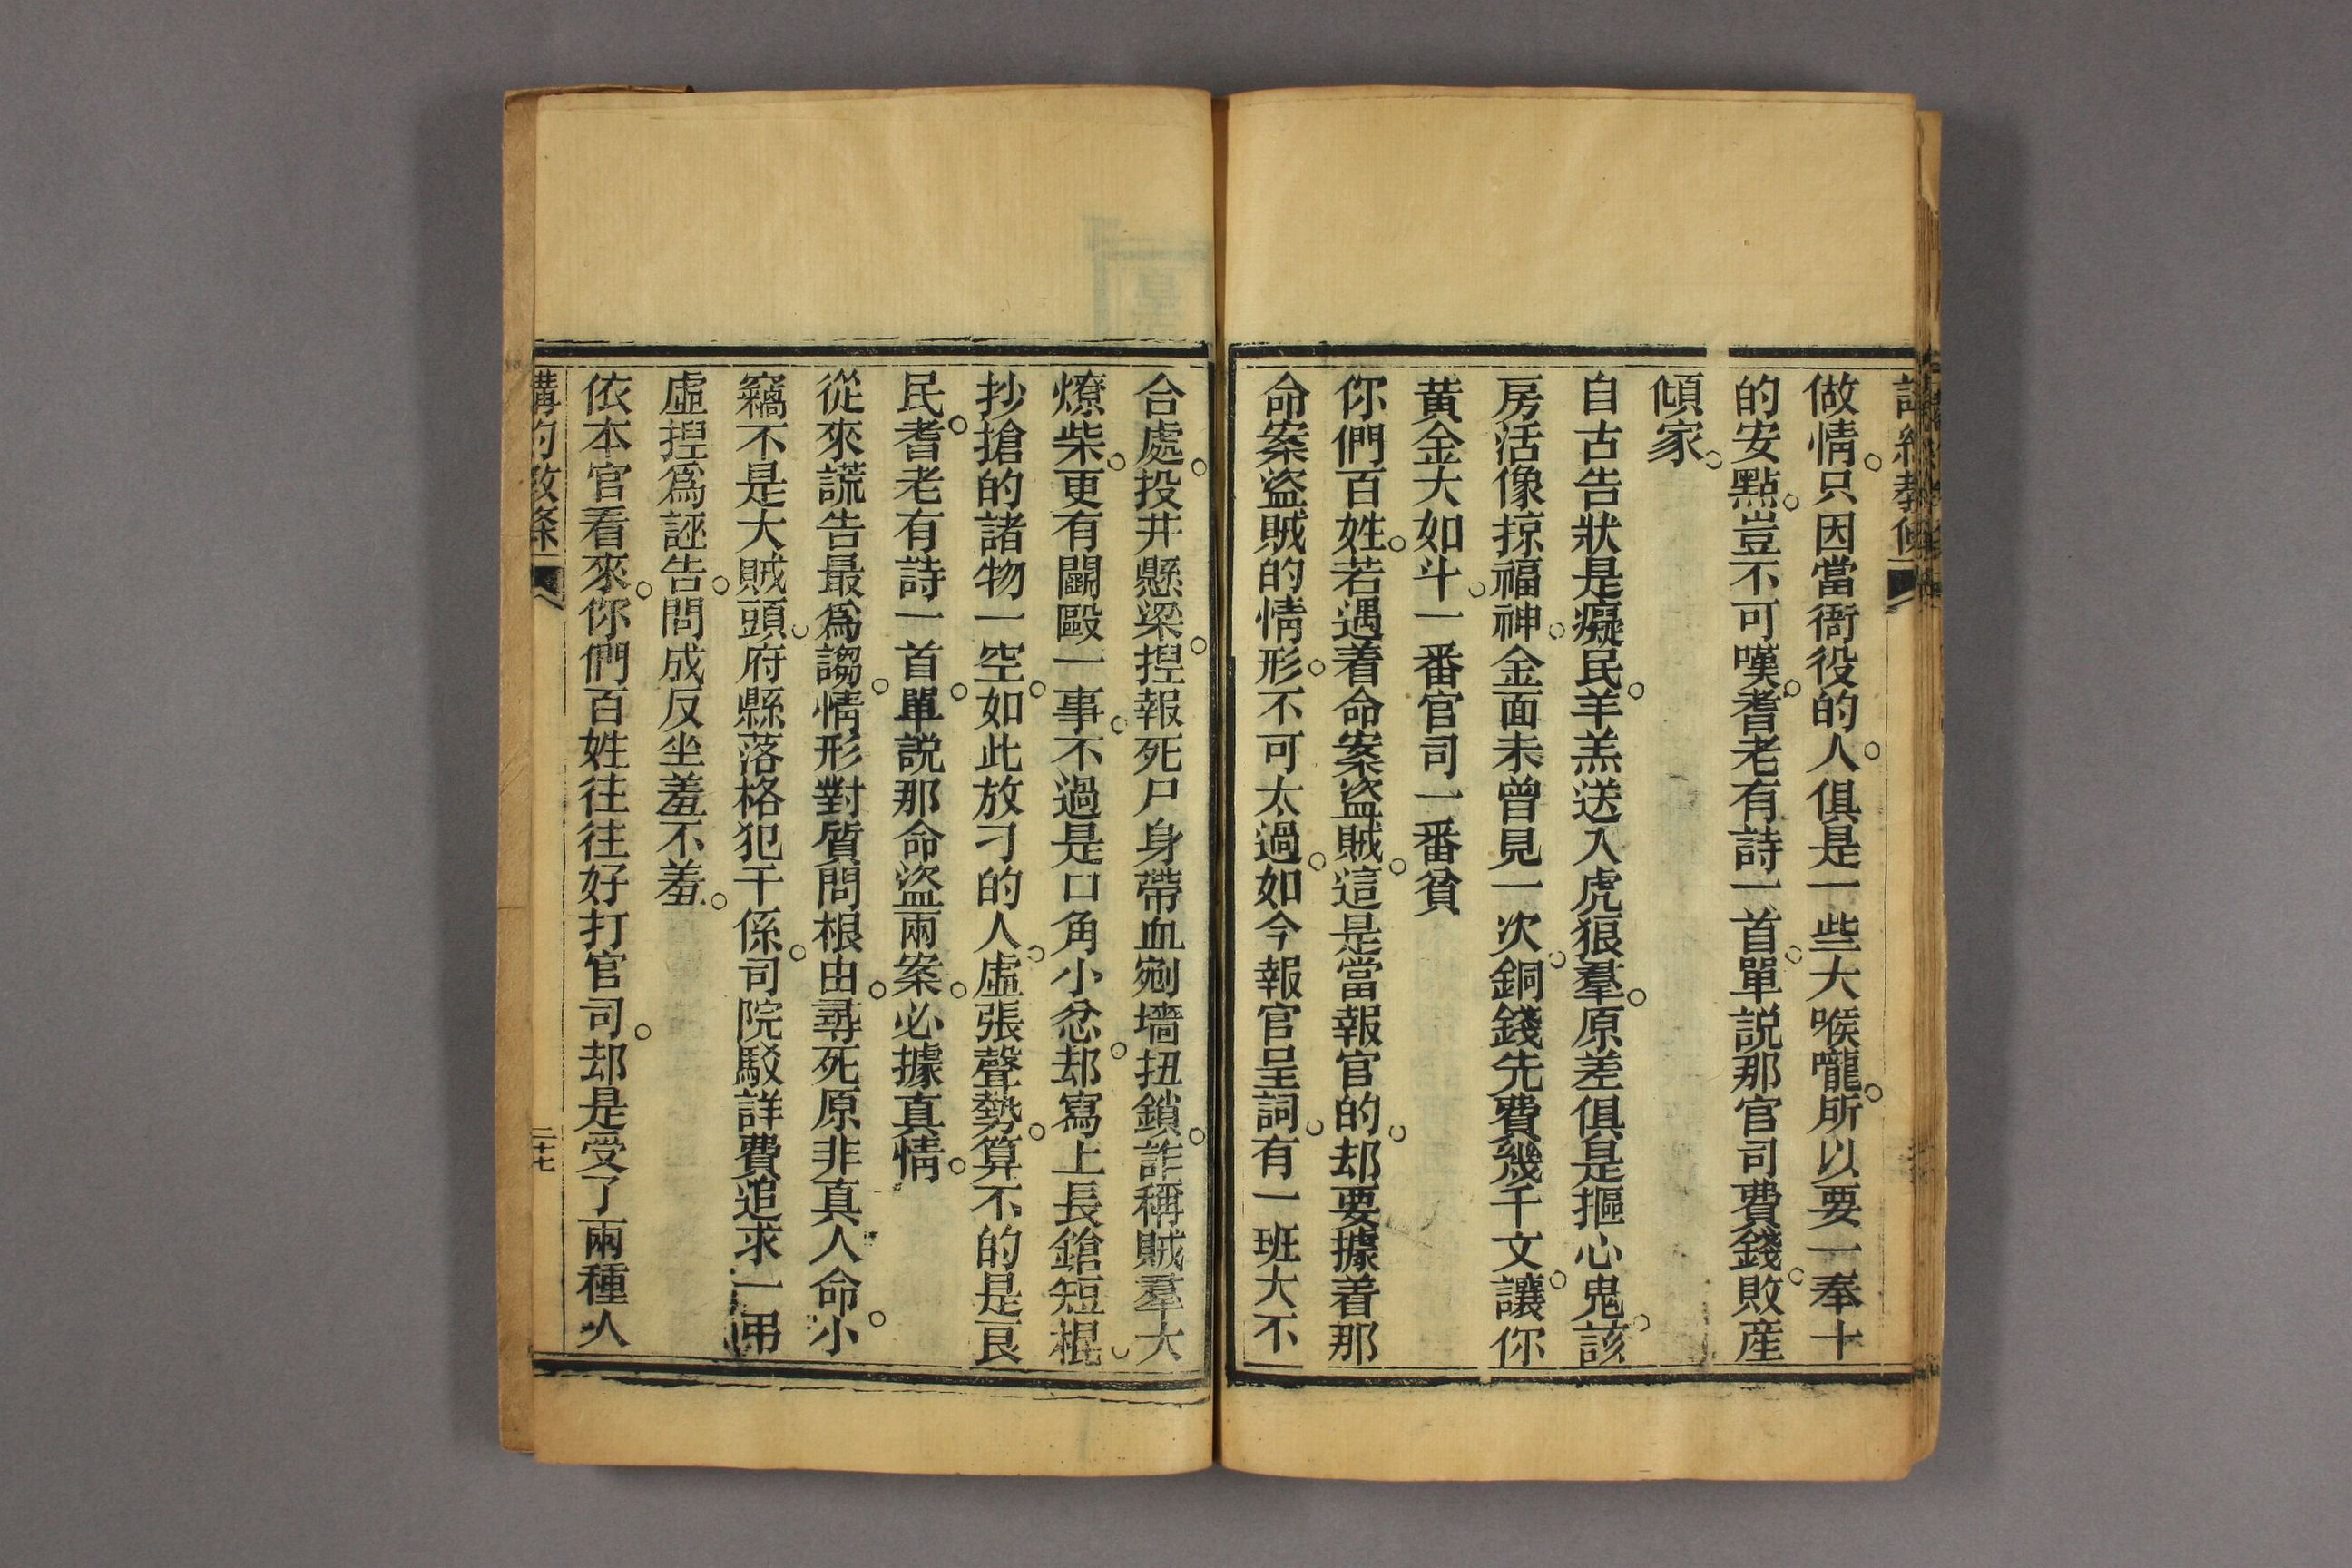 做情。只因當衙役的人。俱是一些大喉嚨。所以要一奉十
的安點。豈不可嘆。耆老有詩一首。單説那官司費錢。敗産
傾家。
自古告狀是癡民。羊羔送入虎狼羣。原差俱是摳心鬼。該
房活像掠福神。金面未曾見一次。銅錢先費幾千文。讓你
黃金大如斗。一番官司一番貧
你們百姓。若遇着命案盜賊。這是當報官的。却要據着那
命案盜賊的情形。不可太過。如今報官呈詞。有一班大不
合處。投井懸梁。揑報死尸身帶血。剜墻扭鎖。詐稱賊羣大
燎柴。更有鬬毆一事。不過是口角小忿。却寫上長鎗短棍。
抄搶的諸物一空。如此放刁的人。虛張聲勢。算不的是良
民。耆老有詩一首。單説那命盜兩案。必據真情。
從來謊告最爲謅。情形對質問根由。尋死原非真人命。小
竊不是大賊頭。府縣落格犯干係。司院駁詳費追求。一弔
虛揑爲誣告。問成反坐羞不羞。
依本官看來。你們百姓往往好打官司。却是受了兩種人
講約教條
二十七